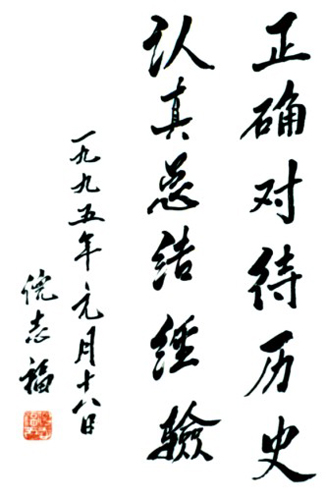 正确对待历史
认真总结经验
一九九五年元月十八日
倪志福